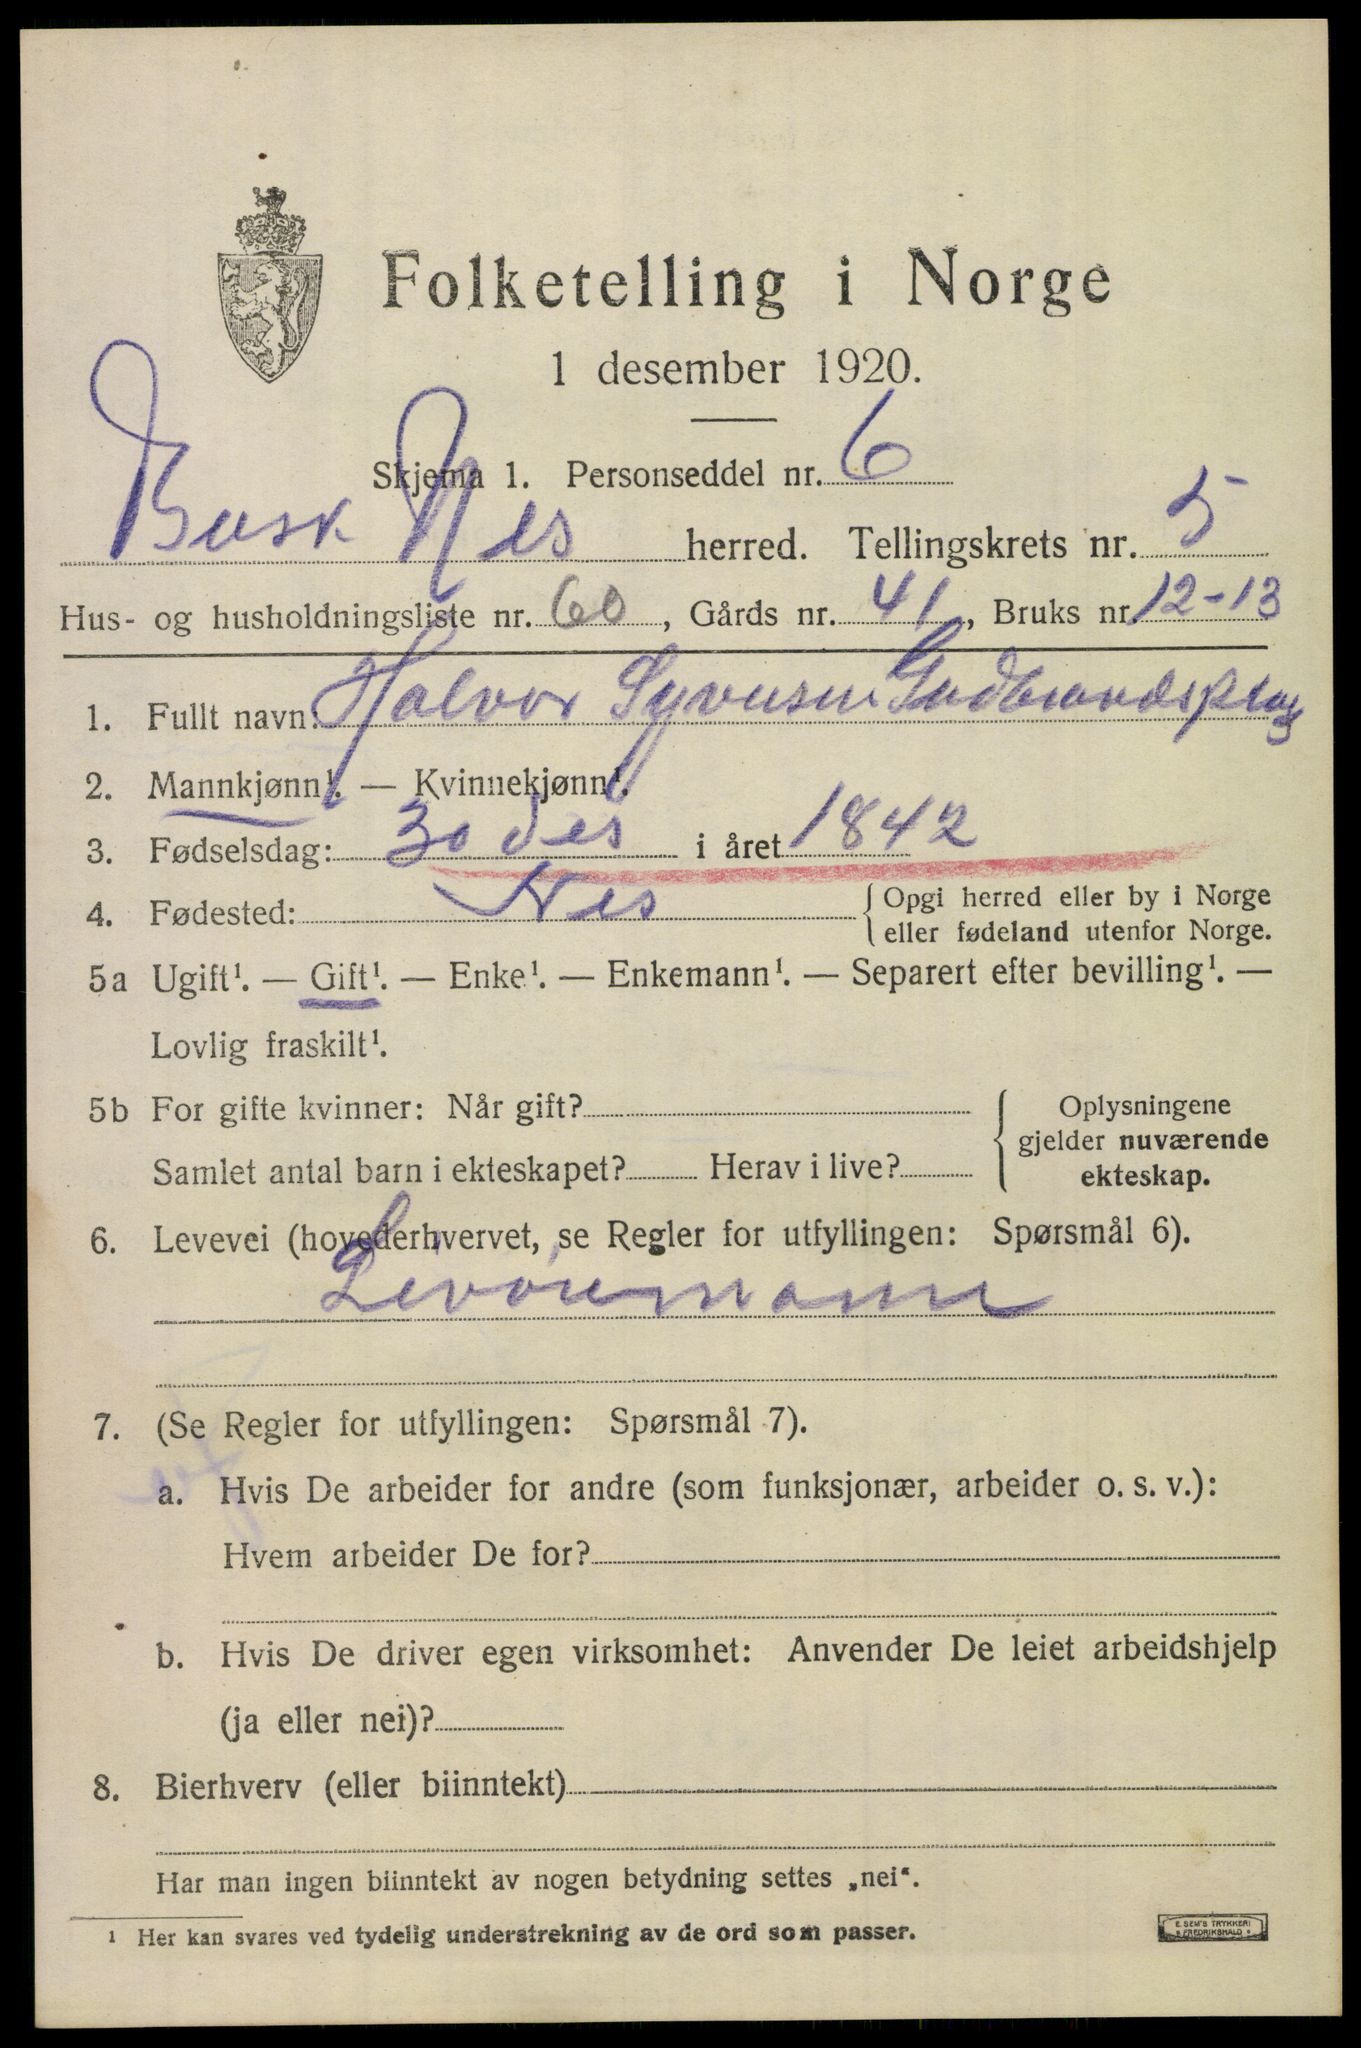 Folketelling i Norge
1 desember 1920.
Skjema 1. Personseddel nr. 6
Busk Nes herred. Tellingskrets nr. 5
Hus- og husholdningsliste nr. 60, Gårds nr. 41, Bruks nr. 12-13
1. Fullt navn: Halvor Syversen
2. Mannkjønn¹. — Kvinnekjønn¹.
3. Fødselsdag: 30 des i året 1842
4. Fødested: Nes {Opgi herred eller by i Norge
eller fødeland utenfor Norge.
5a Ugift¹. — Gift¹. — Enke¹. — Enkemann¹. — Separert efter bevilling¹. —
Lovlig fraskilt¹.
5b For gifte kvinner: Når gift? { Oplysningene
gjelder nuværende
Samlet antal barn i ekteskapet? Herav i live? ekteskap.
6. Levevei (hovederhvervet, se Regler for utfyllingen: Spørsmål 6).
7. (Se Regler for utfyllingen: Spørsmål 7).
a. Hvis De arbeider for andre (som funksjonær, arbeider o. s. v.):
Hvem arbeider De for?
b. Hvis De driver egen virksomhet: Anvender De leiet arbeidshjelp
(ja eller nei)?
8. Bierhverv (eller biinntekt)
Har man ingen biinntekt av nogen betydning settes „nei“.
¹ Her kan svares ved tydelig understrekning av de ord som passer.
E. SEM'S TRYKKERI
FREDRIKSHALD